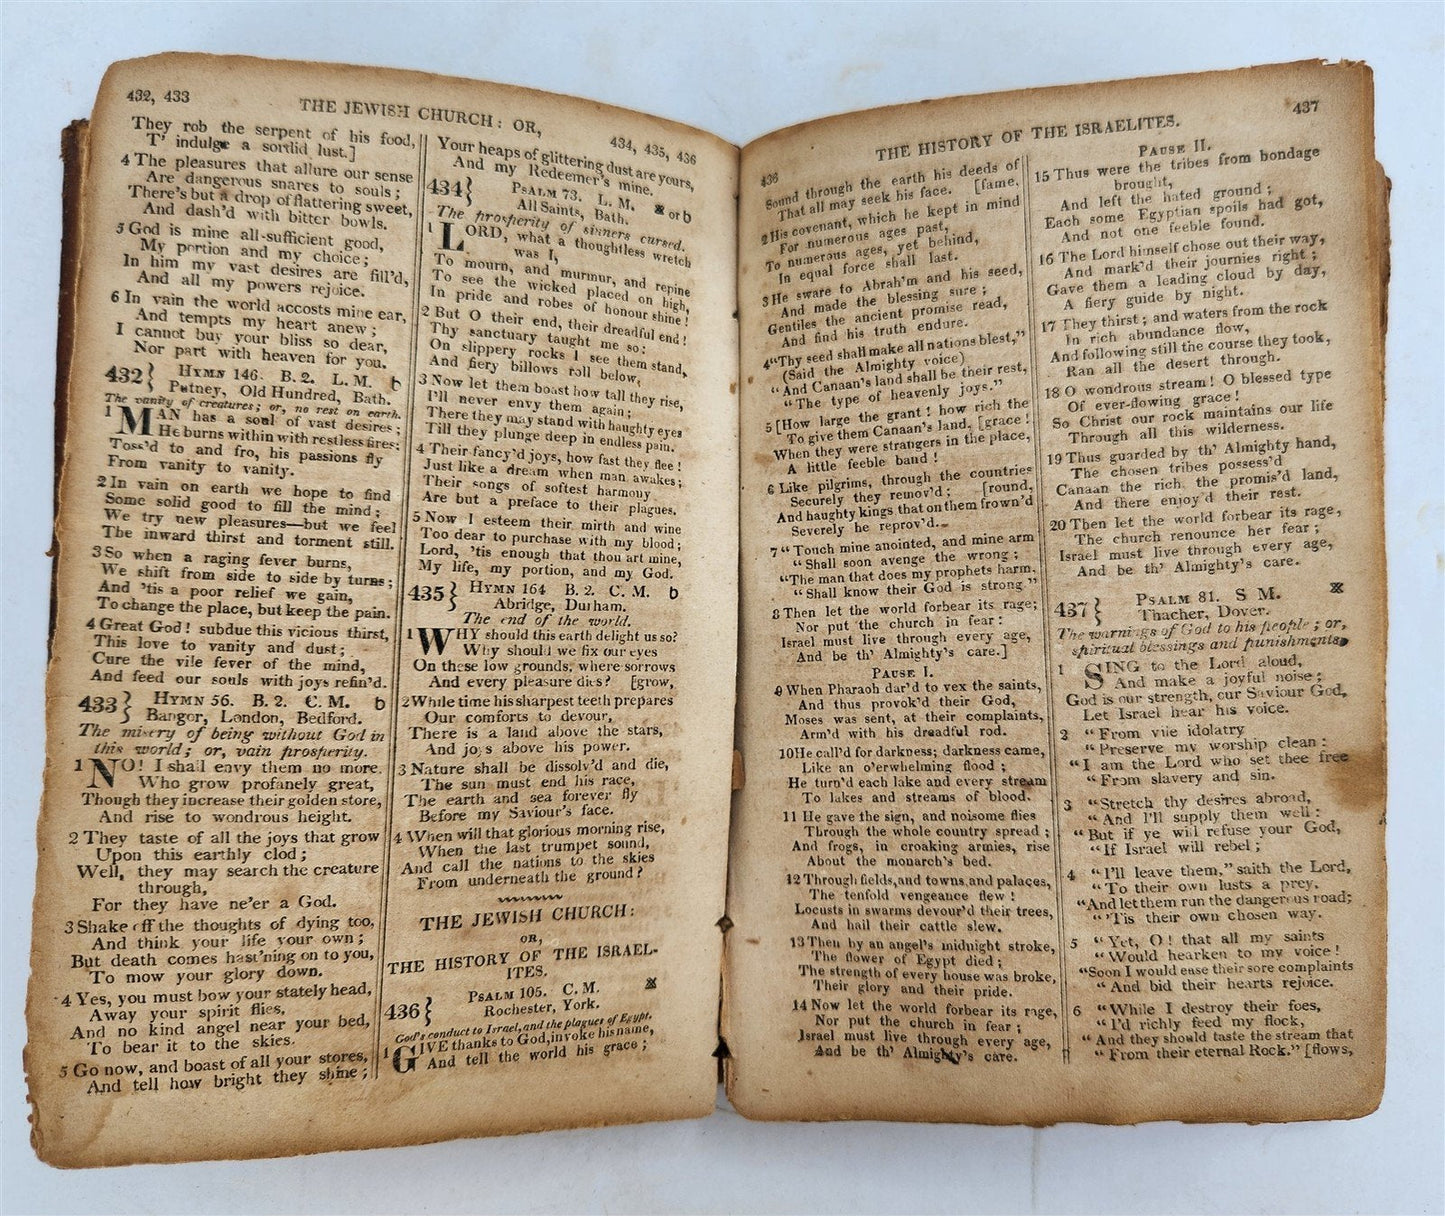 432, 433
THE JEWISH CHURCH: OR,
434, 435, 436
They rob the serpent of his food,
T' indulge a sordid lust.]
4 The pleasures that allure our sense
Are dangerous snares to souls;
There's but a drop of flattering sweet,
And dash'd with bitter bowls.
5 God is mine all-sufficient good,
My portion and my choice;
In him my vast desires are fill'd,
And all my powers rejoice.
6 In vain the world accosts mine ear,
And tempts my heart anew;
I cannot buy your bliss so dear,
Nor part with heaven for you.
432} HYMN 146. B. 2. L. M. b
Putney, Old Hundred, Bath.
The vanity of creatures; or, no rest on earth.
1 MAN has a soul of vast desires;
He burns within with restless fires:
Toss'd to and fro, his passions fly
From vanity to vanity.
2 In vain on earth we hope to find
Some solid good to fill the mind;
We try new pleasures—but we feel
The inward thirst and torment still.
3 So when a raging fever burns,
We shift from side to side by turns;
And 'tis a poor relief we gain,
To change the place, but keep the pain.
4 Great God! subdue this vicious thirst,
This love to vanity and dust;
Cure the vile fever of the mind,
And feed our souls with joys refin'd.
433} HYMN 56. B. 2. C. M. b
Bangor, London, Bedford.
The misery of being without God in
this world; or, vain prosperity.
1 NO! I shall envy them no more
Who grow profanely great,
Though they increase their golden store,
And rise to wondrous height.
2 They taste of all the joys that grow
Upon this earthly clod;
Well, they may search the creature
through,
For they have ne'er a God.
3 Shake off the thoughts of dying too,
And think your life your own;
But death comes hast'ning on to you,
To mow your glory down.
4 Yes, you must bow your stately head,
Away your spirit flies,
And no kind angel near your bed,
To bear it to the skies.
5 Go now, and boast of all your stores,
And tell how bright they shine;
Your heaps of glittering dust are yours,
And my Redeemer's mine.
434} PSALM 73. L. M. ⌘ or b
All Saints, Bath.
The prosperity of sinners cursed.
1 LORD, what a thoughtless wretch
was I,
To mourn, and murmur, and repine
To see the wicked placed on high,
In pride and robes of honour shine!
2 But O their end, their dreadful end!
Thy sanctuary taught me so:
On slippery rocks I see them stand,
And fiery billows roll below.
3 Now let them boast how tall they rise,
I'll never envy them again;
There they may stand with haughty eyes
Till they plunge deep in endless pain.
4 Their fancy'd joys, how fast they flee!
Just like a dream when man awakes;
Their songs of softest harmony
Are but a preface to their plagues.
5 Now I esteem their mirth and wine
Too dear to purchase with my blood;
Lord, 'tis enough that thou art mine,
My life, my portion, and my God.
435} HYMN 164 B. 2. C. M. b
Abridge, Durham.
The end of the world.
1 WHY should this earth delight us so?
Why should we fix our eyes
On these low grounds, where sorrows
And every pleasure dies? [grow,
2 While time his sharpest teeth prepares
Our comforts to devour,
There is a land above the stars,
And joys above his power.
3 Nature shall be dissolv'd and die,
The sun must end his race,
The earth and sea forever fly
Before my Saviour's face.
4 When will that glorious morning rise,
When the last trumpet sound,
And call the nations to the skies
From underneath the ground?
THE JEWISH CHURCH:
OR,
THE HISTORY OF THE ISRAEL-
ITES.
436} PSALM 105. C. M. ⌘
Rochester, York.
God's conduct to Israel, and the plagues of Egypt.
1 GIVE thanks to God, invoke his name,
And tell the world his grace;
436
THE HISTORY OF THE ISRAELITES.
437
Sound through the earth his deeds of
That all may seek his face. [fame,
2 His covenant, which he kept in mind
For numerous ages past,
To numerous ages, yet behind,
In equal force shall last.
3 He sware to Abrah'm and his seed,
And made the blessing sure;
Gentiles the ancient promise read,
And find his truth endure.
4 "Thy seed shall make all nations blest,"
(Said the Almighty voice)
"And Canaan's land shall be their rest,
"The type of heavenly joys."
5 [How large the grant! how rich the
To give them Canaan's land, [grace!
When they were strangers in the place,
A little feeble band!
6 Like pilgrims, through the countries
Securely they remov'd; [round,
And haughty kings that on them frown'd
Severely he reprov'd.
7 "Touch mine anointed, and mine arm
"Shall soon avenge the wrong;
"The man that does my prophets harm,
"Shall know their God is strong"
8 Then let the world forbear its rage;
Nor put the church in fear:
Israel must live through every age,
And be th' Almighty's care.]
PAUSE I.
9 When Pharaoh dar'd to vex the saints,
And thus provok'd their God,
Moses was sent, at their complaints,
Arm'd with his dreadful rod.
10 He call'd for darkness; darkness came,
Like an o'erwhelming flood;
He turn'd each lake and every stream
To lakes and streams of blood.
11 He gave the sign, and noisome flies
Through the whole country spread;
And frogs, in croaking armies, rise
About the monarch's bed.
12 Through fields, and towns, and palaces,
The tenfold vengeance flew!
Locusts in swarms devour'd their trees,
And hail their cattle slew.
13 Then by an angel's midnight stroke,
The flower of Egypt died;
The strength of every house was broke,
Their glory and their pride.
14 Now let the world forbear its rage,
Nor put the church in fear;
Israel must live through every age,
And be th' Almighty's care.
PAUSE II.
15 Thus were the tribes from bondage
brought,
And left the hated ground;
Each some Egyptian spoils had got,
And not one feeble found.
16 The Lord himself chose out their way,
And mark'd their journies right;
Gave them a leading cloud by day,
A fiery guide by night.
17 They thirst; and waters from the rock
In rich abundance flow,
And following still the course they took,
Ran all the desert through.
18 O wondrous stream! O blessed type
Of ever-flowing grace!
So Christ our rock maintains our life
Through all this wilderness.
19 Thus guarded by th' Almighty hand,
The chosen tribes possess'd
Canaan the rich, the promis'd land,
And there enjoy'd their rest.
20 Then let the world forbear its rage,
The church renounce her fear;
Israel must live through every age,
And be th' Almighty's care.
437} PSALM 81. S M. ⌘
Thacher, Dover.
The warnings of God to his people; or,
spiritual blessings and punishments.
1 SING to the Lord aloud,
And make a joyful noise;
God is our strength, our Saviour God,
Let Israel hear his voice.
2 "From vile idolatry
"Preserve my worship clean:
"I am the Lord who set thee free
"From slavery and sin.
3 "Stretch thy desires abroad,
"And I'll supply them well:
"But if ye will refuse your God,
"If Israel will rebel;
4 "I'll leave them," saith the Lord,
"To their own lusts a prey,
"And let them run the dangerous road;
"'Tis their own chosen way.
5 "Yet, O! that all my saints
"Would hearken to my voice!
"Soon I would ease their sore complaints
"And bid their hearts rejoice.
6 "While I destroy their foes,
"I'd richly feed my flock,
"And they should taste the stream that
"From their eternal Rock." [flows,